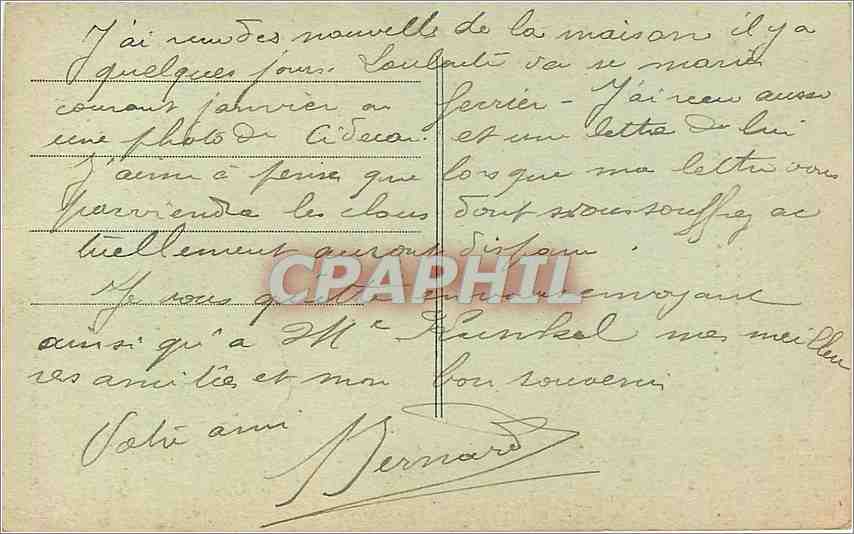 J'ai reu des nouvelle de la maison il y a
quelques jours. va se marier
courant janvier ou fevrier - J'ai reeu aussi
une photo de et une lettre de lui
J'aime à penser que lorsque ma lettre vous
parviendra les clous dont vous souffrez ac
tuellement auront disparu.
Je vous quitte en vous envoyant
ainsi qu'a Me Kunkel mes meilleu
res amities et mon bon souvenir
Votre ami
Bernard
CPAPHIL